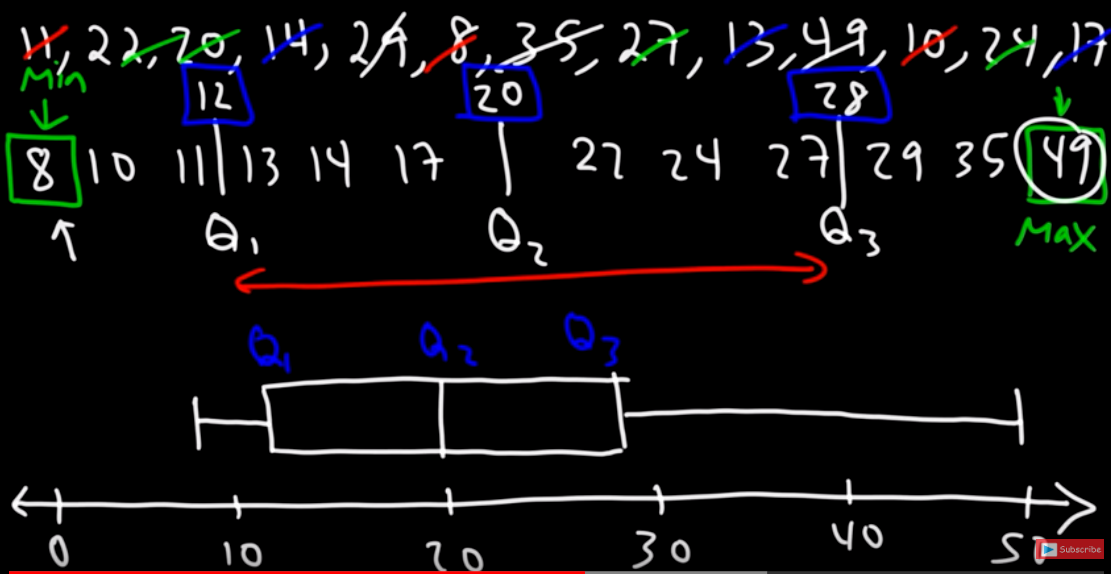 11, 22, 20, 14, 29, 8, 35, 27, 13, 49, 10, 24, 17
Min
12 20 28
8 10 11 13 14 17 22 24 27 29 35 49
Q1 Q2 Q3 Max
Q1 Q2 Q3
0 10 20 30 40 50
Subscribe